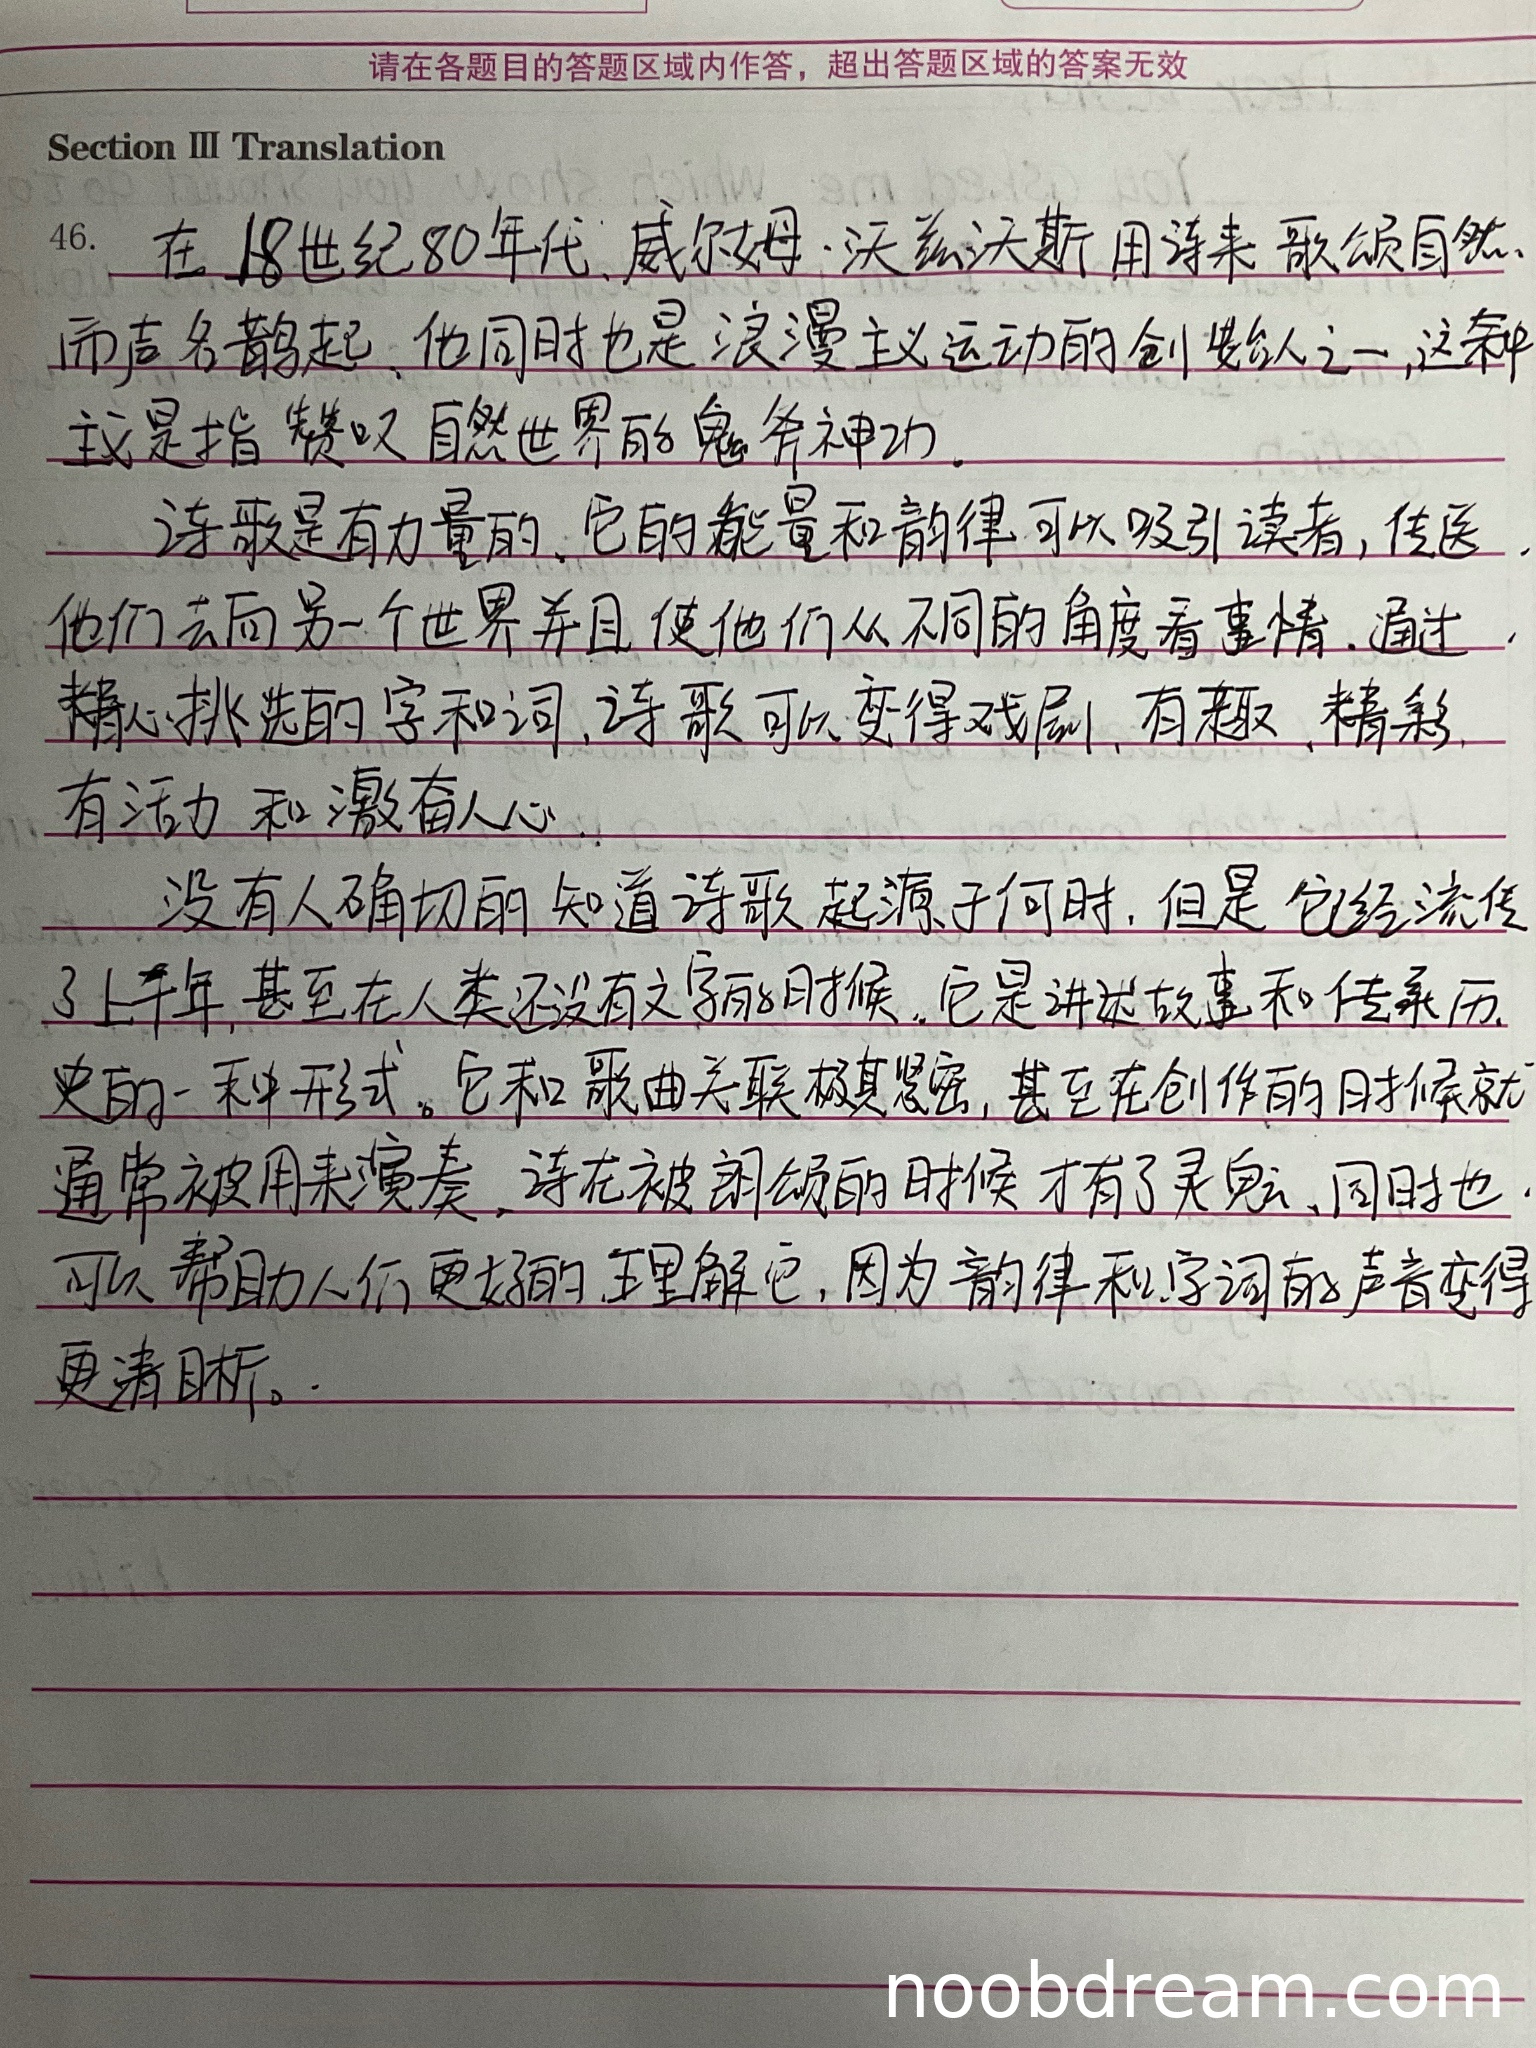 请在各题目的答题区域内作答，超出答题区域的答案无效
Section Ⅲ Translation
46. 在18世纪80年代、威尔姆·沃兹沃斯用诗来歌颂自然、
而声名鹊起、他同时也是浪漫主义运动的创始人之一,这种
主义是指赞叹自然世界的鬼斧神功.
诗歌是有力量的、它的能量和韵律可以吸引读者,传送
他们去向另一个世界并且使他们从不同的角度看事情.通过
精心挑选的字和词,诗歌可以变得戏剧、有趣、精彩、
有活力和激奋人心.
没有人确切的知道诗歌起源于何时.但是它已经流传
了上千年,甚至在人类还没有文字的时候.它是讲述故事和传承历
史的一种形式。它和歌曲关联极其紧密,甚至在创作的时候就
通常被用来演奏、诗在被朗颂的时候才有了灵魂、同时也
可以帮助人们更好的理解它,因为韵律和字词的声音变得
更清晰。
noobdream.com